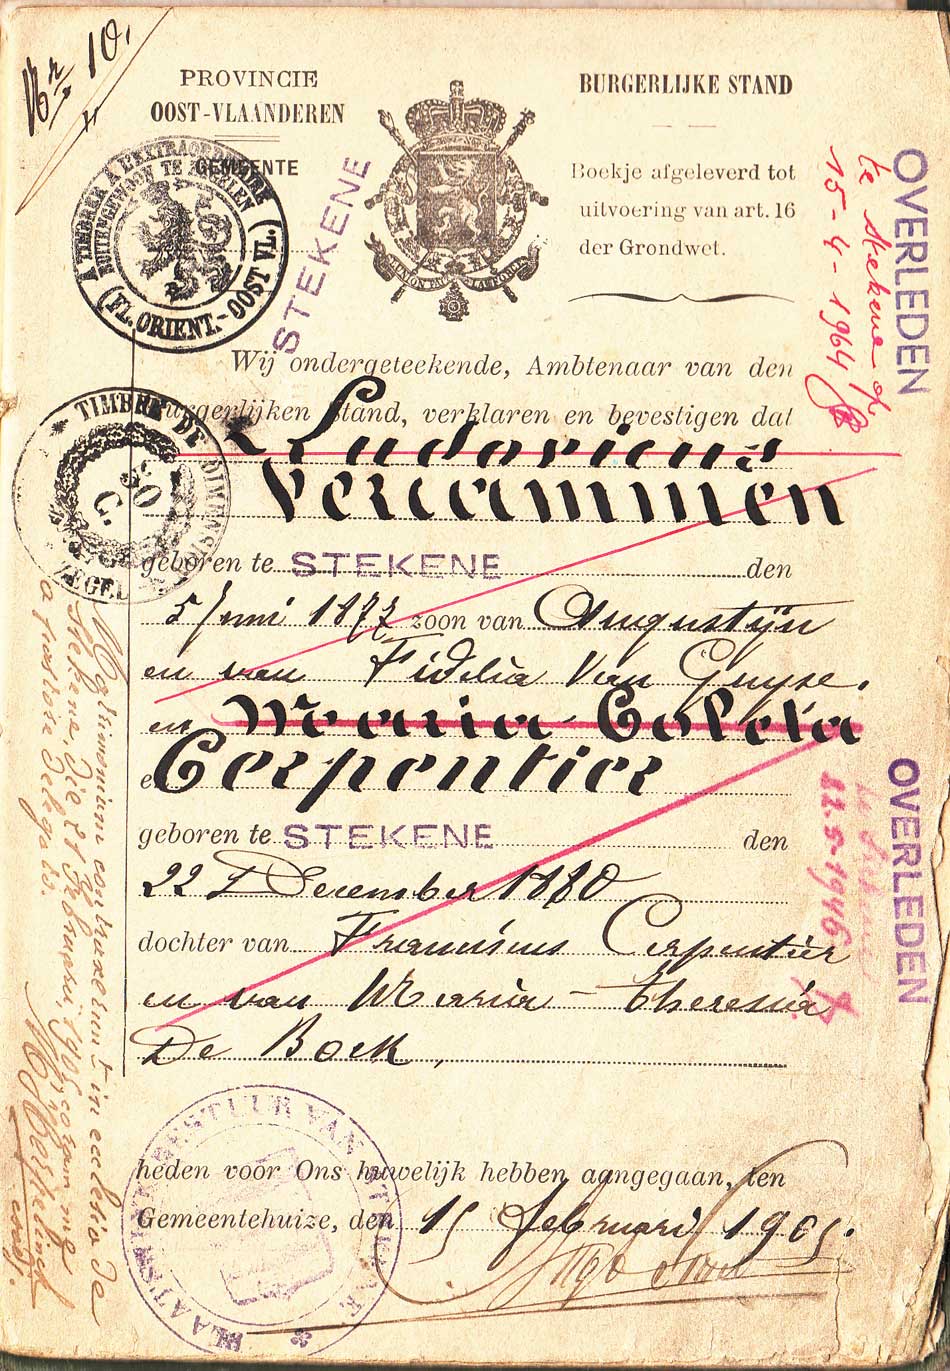 Nr 10.
PROVINCIE
OOST-VLAANDEREN
GEMEENTE
STEKENE
BURGERLIJKE STAND
Boekje afgeleverd tot
uitvoering van art. 16
der Grondwet.
A TIMBRER A L'EXTRAORDINAIRE
BUITENGEWOON TE ZEGELEN
(FL. ORIENT.-OOST VL.)
OVERLEDEN
te Stekene op
15-4-1964
Wij ondergeteekende, Ambtenaar van den
Burgerlijken Stand, verklaren en bevestigen dat
TIMBRE DE DIMENSION
30
C.
ZEGEL
Ludovicus
Vercammen
geboren te STEKENE den
5 Juni 1877 zoon van Augustijn
en van Fidelia Van Guyse.
en Maria Coleta
Cerpentier
geboren te STEKENE den
22 December 1880
dochter van Franciscus Cerpentier
en van Maria-Theresia
De Bock,
OVERLEDEN
te Stekene
22.5.1946
heden voor Ons huwelijk hebben aangegaan, ten
Gemeentehuize, den 15 Februari 1905.
PLAATSELIJK BESTUUR VAN STEKENE
Matrimonium contraxerunt in ecclesia de
Stekene, die 21 Februarii 1905 coram me